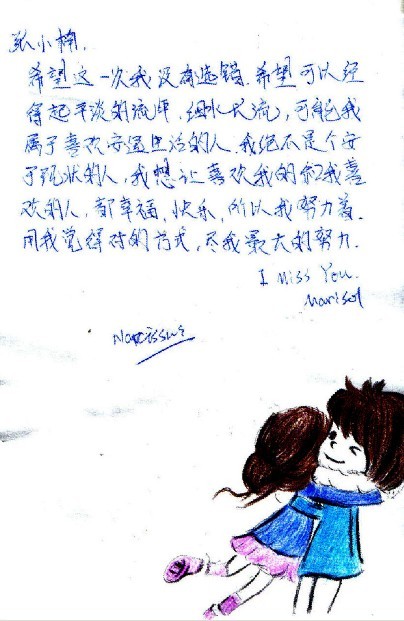 张小楠.
希望这一次我没有选错.希望可以经
得起平淡的流年.细水长流,可能我
属于喜欢安逸生活的人.我绝不是个安
于现状的人,我想让喜欢我的和我喜
欢的人,都幸福,快乐,所以我努力着.
用我觉得对的方式,尽我最大的努力.
I Miss You.
Marisol
Narcissus